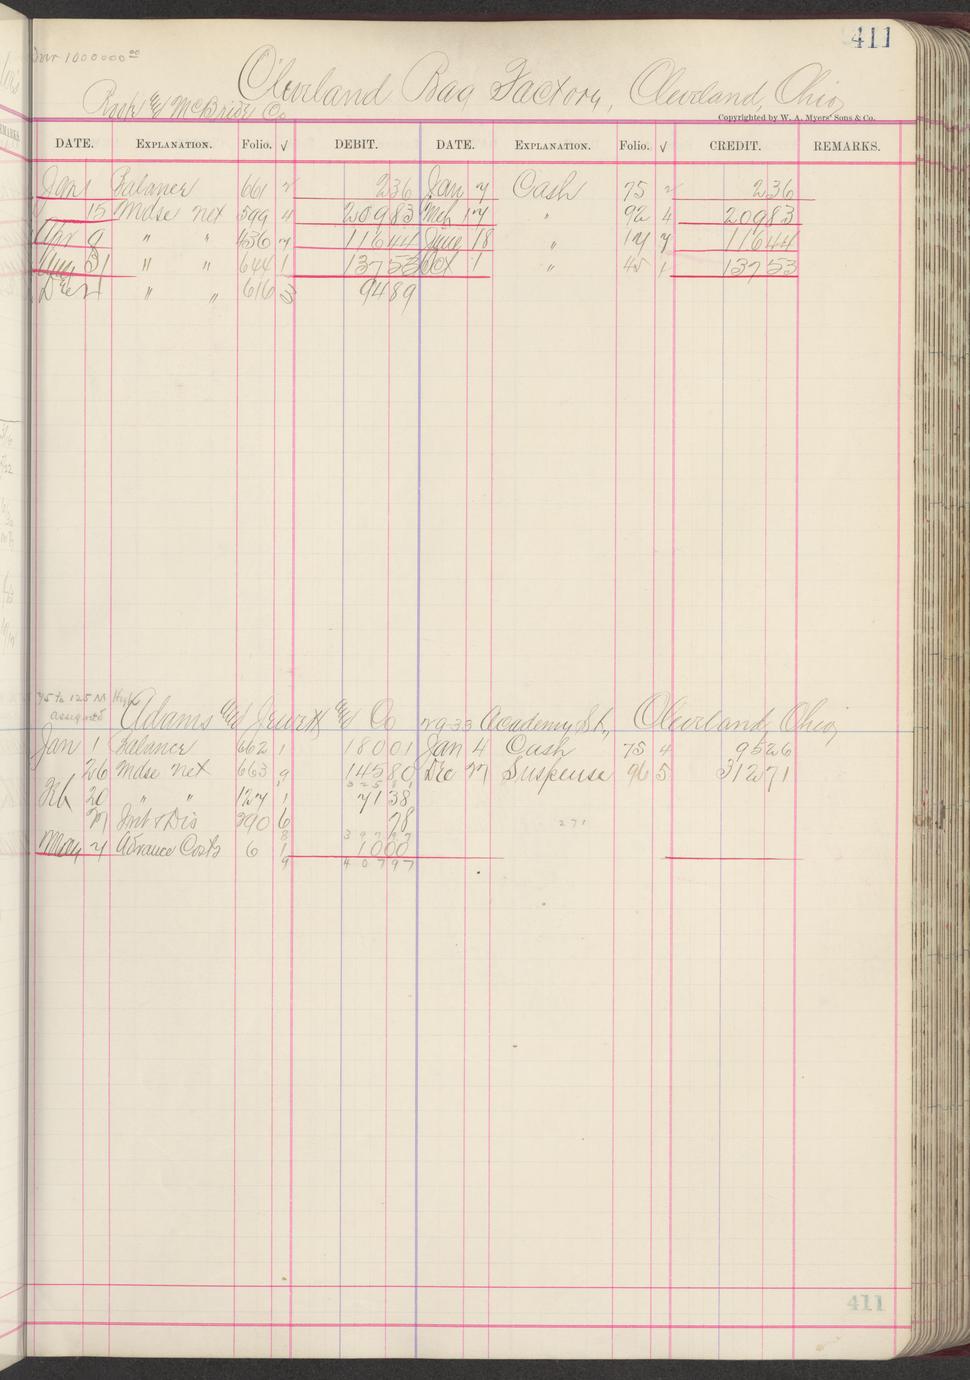 411
over 1000000 00
Cleveland Bag Factory, Cleveland, Ohio,
& McBride Co.
Copyrighted by W. A. Myers' Sons & Co.
DATE. EXPLANATION. Folio. √ DEBIT. DATE. EXPLANATION. Folio. √ CREDIT. REMARKS.
Jan 1 Balance 661 2 236 Jan 7 Cash 75 2 236
15 Mdse net 599 4 20983 Mch 17 " 92 4 20983
Apr 9 " " 436 7 11644 June 18 " 17 7 11644
Aug 31 " " 644 1 13753 Oct 1 " 45 1 13753
Dec 21 " " 616 3 9489
75 to 125 M High
assigned
Adams & Jewett & Co 29-33 Academy St., Cleveland, Ohio,
Jan 1 Balance 662 1 18001 Jan 4 Cash 75 4 9526
26 Mdse net 663 9 14580 Dec 27 Suspense 96 5 31271
32581
Feb 20 " " 127 1 7138
27 Int & Dis 390 6 78
271
8 39797
May 7 Advance Costs 6 1 1000
9 40797
411